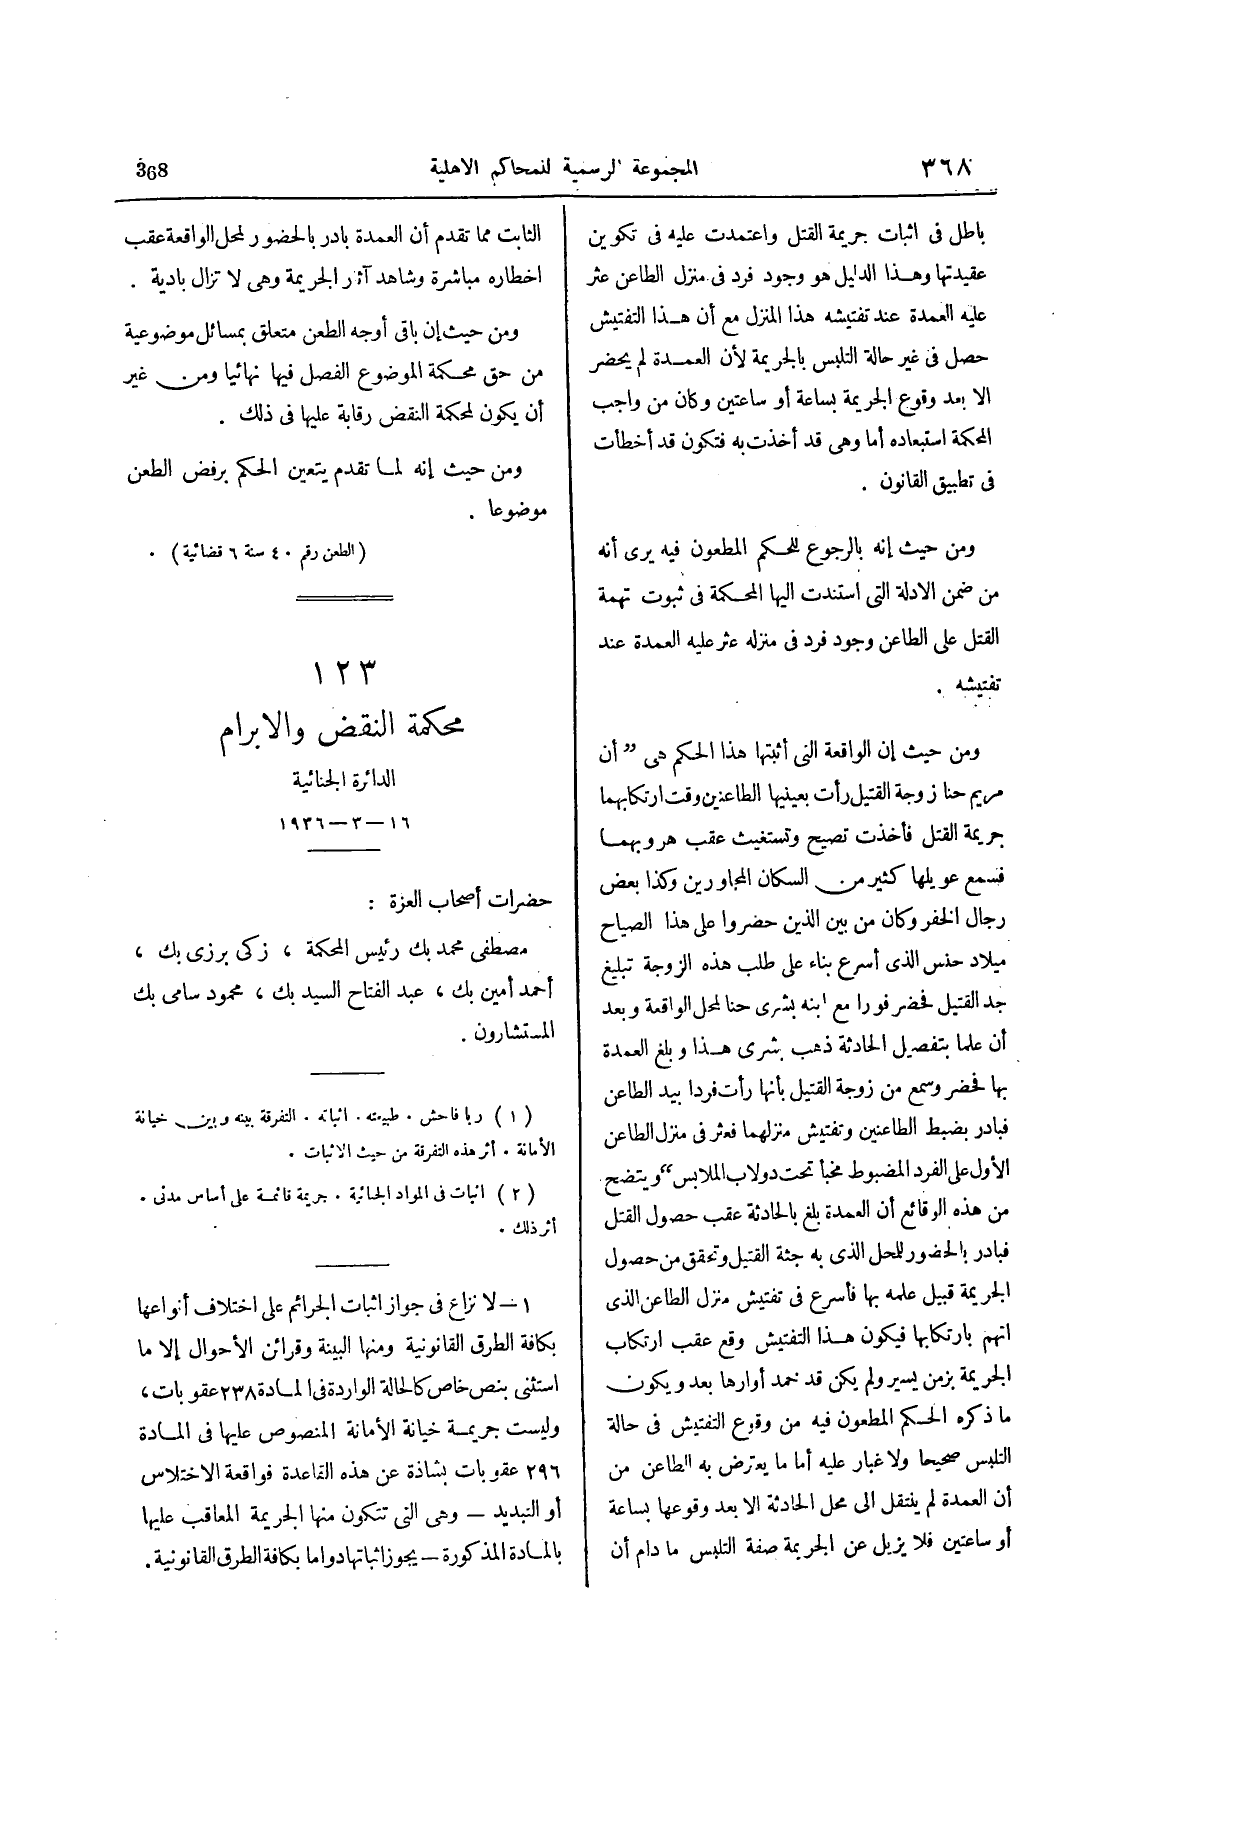 ٣٦٨
المجموعة الرسمية للمحاكم الاهلية
368
باطل فى اثبات جريمة القتل واعتمدت عليه فى تكوين
عقيدتها وهذا الدليل هو وجود فرد فى منزل الطاعن عثر
عليه العمدة عند تفتيشه هذا المنزل مع أن هذا التفتيش
حصل فى غير حالة التلبس بالجريمة لأن العمدة لم يحضر
الا بعد وقوع الجريمة بساعة أو ساعتين وكان من واجب
المحكمة استبعاده أما وهى قد أخذت به فتكون قد أخطأت
فى تطبيق القانون .
ومن حيث إنه بالرجوع للحكم المطعون فيه يرى أنه
من ضمن الادلة التى استندت اليها المحكمة فى ثبوت تهمة
القتل على الطاعن وجود فرد فى منزله عثر عليه العمدة عند
تفتيشه .
ومن حيث إن الواقعة التى أثبتها هذا الحكم هى ”أن
مريم حنا زوجة القتيل رأت بعينيها الطاعنين وقت ارتكابهما
جريمة القتل فأخذت تصيح وتستغيث عقب هروبهما
فسمع عويلها كثير من السكان المجاورين وكذا بعض
رجال الخفر وكان من بين الذين حضروا على هذا الصياح
ميلاد حنس الذى أسرع بناء على طلب هذه الزوجة تبليغ
جد القتيل فحضر فورا مع ابنه بشرى حنا لمحل الواقعة وبعد
أن علما بتفصيل الحادثة ذهب بشرى هذا وبلغ العمدة
بها فحضر وسمع من زوجة القتيل بأنها رأت فردا بيد الطاعن
فبادر بضبط الطاعنين وتفتيش منزلهما فعثر فى منزل الطاعن
الأول على الفرد المضبوط مخبأ تحت دولاب الملابس“ ويتضح
من هذه الوقائع أن العمدة بلغ بالحادثة عقب حصول القتل
فبادر بالحضور للمحل الذى به جثة القتيل وتحقق من حصول
الجريمة قبيل علمه بها فأسرع فى تفتيش منزل الطاعن الذى
اتهم بارتكابها فيكون هذا التفتيش وقع عقب ارتكاب
الجريمة بزمن يسير ولم يكن قد خمد أوارها بعد ويكون
ما ذكره الحكم المطعون فيه من وقوع التفتيش فى حالة
التلبس صحيحا ولا غبار عليه أما ما يعترض به الطاعن من
أن العمدة لم ينتقل الى محل الحادثة الا بعد وقوعها بساعة
أو ساعتين فلا يزيل عن الجريمة صفة التلبس ما دام أن
الثابت مما تقدم أن العمدة بادر بالحضور لمحل الواقعة عقب
اخطاره مباشرة وشاهد آثار الجريمة وهى لا تزال بادية .
ومن حيث إن باقى أوجه الطعن متعلق بمسائل موضوعية
من حق محكمة الموضوع الفصل فيها نهائيا ومن غير
أن يكون لمحكمة النقض رقابة عليها فى ذلك .
ومن حيث إنه لما تقدم يتعين الحكم برفض الطعن
موضوعا .
(الطعن رقم ٤٠ سنة ٦ قضائية) .
١٢٣
محكمة النقض والابرام
الدائرة الجنائية
١٦-٣-١٩٣٦
حضرات أصحاب العزة :
مصطفى محمد بك رئيس المحكمة ، زكى برزى بك ،
أحمد أمين بك ، عبد الفتاح السيد بك ، محمود سامى بك
المستشارون .
(١) ربا فاحش . طبيعته . اثباته . التفرقة بينه وبين خيانة
الأمانة . أثر هذه التفرقة من حيث الاثبات .
(٢) اثبات فى المواد الجنائية . جريمة قائمة على أساس مدنى .
أثر ذلك .
١ - لا نزاع فى جواز اثبات الجرائم على اختلاف أنواعها
بكافة الطرق القانونية ومنها البينة وقرائن الأحوال إلا ما
استثنى بنص خاص كالحالة الواردة فى المادة ٢٣٨ عقوبات ،
وليست جريمة خيانة الأمانة المنصوص عليها فى المادة
٢٩٦ عقوبات بشاذة عن هذه القاعدة فواقعة الاختلاس
أو التبديد — وهى التى تتكون منها الجريمة المعاقب عليها
بالمادة المذكورة — يجوز اثباتها دواما بكافة الطرق القانونية .